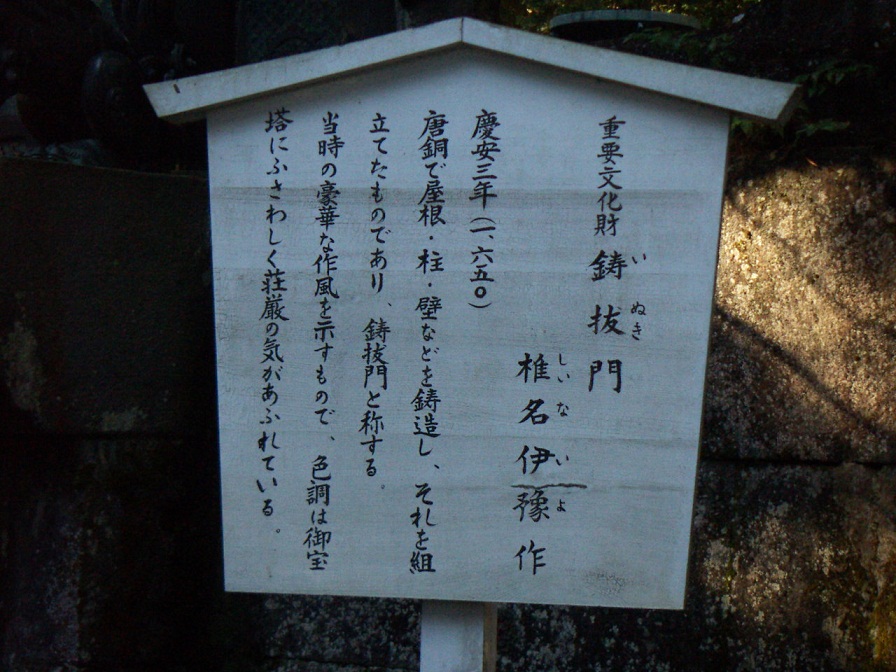 重要文化財 鋳抜門
いぬき
椎名伊豫作
しいな いよ
慶安三年(一、六五〇)
唐銅で屋根・柱・壁などを鋳造し、それを組
立てたものであり、鋳抜門と称する。
当時の豪華な作風を示すもので、色調は御宝
塔にふさわしく荘厳の気があふれている。